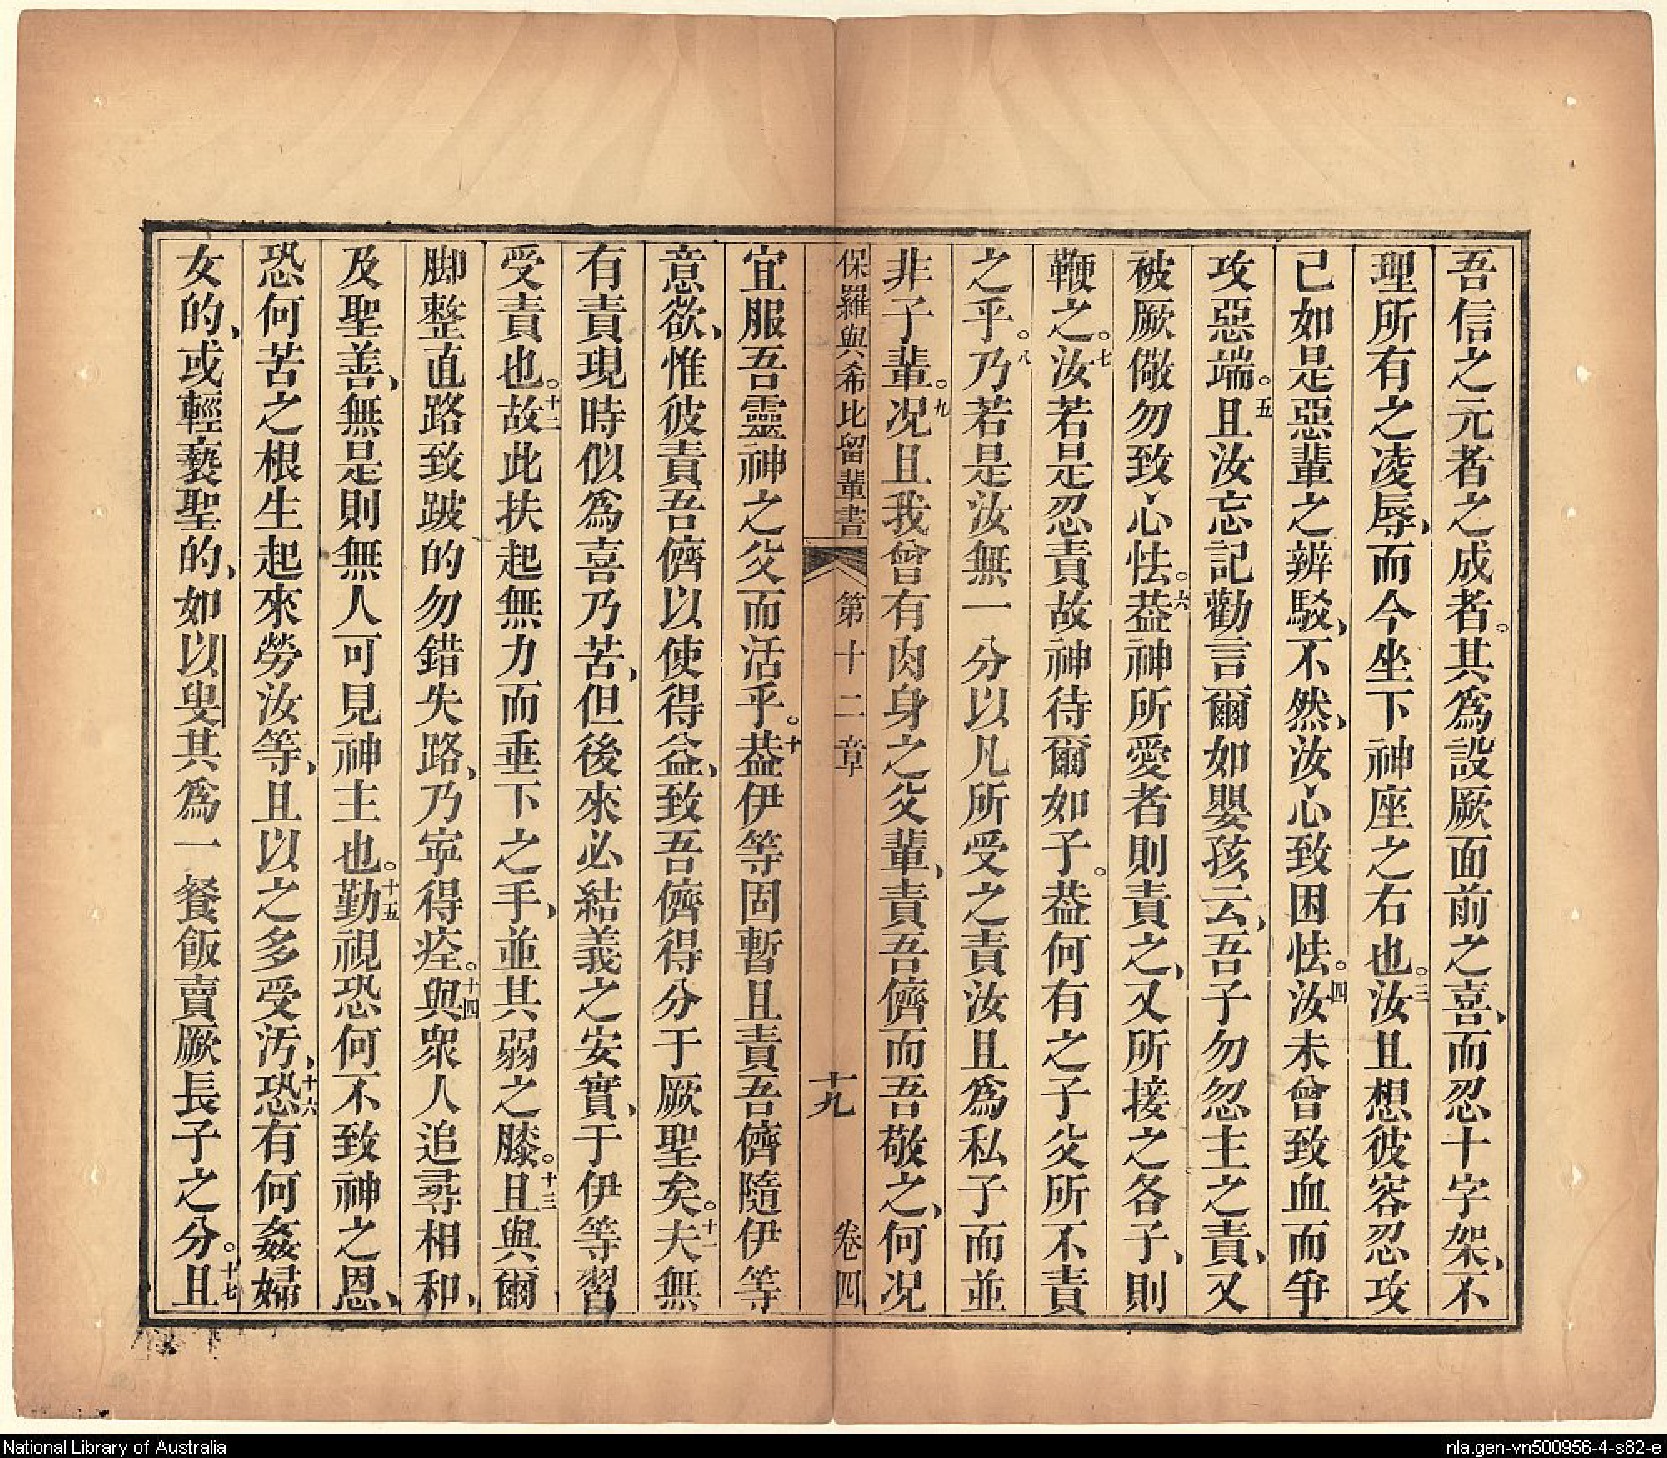 吾信之元者之成者。其爲設厥面前之喜、而忍十字架、不
理所有之凌辱、而今坐下神座之右也。三汝且想彼容忍攻
己如是惡輩之辨駁、不然、汝心致困怯。四汝未曾致血而爭
攻惡端。五且汝忘記勸言爾如嬰孩云、吾子勿忽主之責、又
被厥儆勿致心怯。六葢神所愛者則責之、又所接之各子、則
鞭之。七汝若是忍責故神待爾如子。葢何有之子父所不責
之乎。八乃若是汝無一分以凡所受之責汝且爲私子而並
非子輩。九况且我曾有肉身之父輩、責吾儕而吾敬之、何况
保羅與希比留輩書 第十二章 十九 卷四
宜服吾靈神之父而活乎。十葢伊等固暫且責吾儕隨伊等
意欲、惟彼責吾儕以使得益、致吾儕得分于厥聖矣。十一夫無
有責現時似爲喜乃苦、但後來必結義之安實、于伊等習
受責也。十二故此扶起無力而垂下之手、並其弱之膝。十三且與爾
脚整直路致跛的勿錯失路、乃寧得痊。十四與衆人追尋相和、
及聖善、無是則無人可見神主也。十五勤視恐何不致神之恩、
恐何苦之根生起來勞汝等、且以之多受汚、十六恐有何姦婦
女的、或輕褻聖的、如以叟其爲一餐飯賣厥長子之分。十七且
National Library of Australia
nla.gen-vn500956-4-s82-e